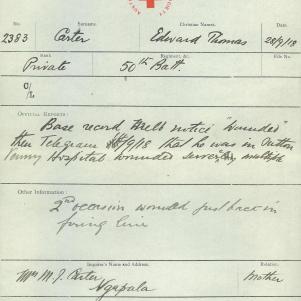 No. Surname. Christian Names. Date.
2383 Carter Edward Thomas 28/9/18
Rank Regiment, &c. File No.
Private 50th Batt.
OFFICIAL REPORTS:
Base record Melb notice "Wounded"
then Telegram /9/18 that he was in Sutton
Hospital wounded multiple
Other Information:
2nd occasion wounded just back in
firing line
Inquirer's Name and Address. Relation.
Mrs M. J. Carter Mother
Ngapala